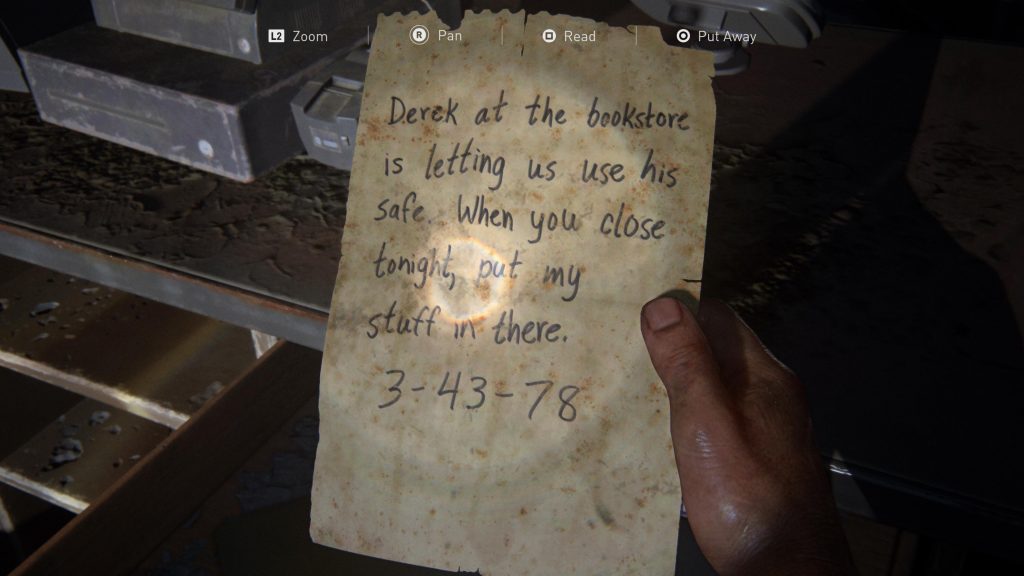 L2 Zoom R Pan Read Put Away
Derek at the bookstore
is letting us use his
safe. When you close
tonight, put my
stuff in there.
3-43-78